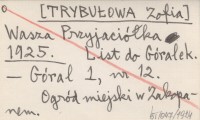 [TRYBUŁOWA Zofia]
Wasza Przyjaciółka
1925. List do Góralek.
— Góral 1, nr 12.
Ogród miejski w Zakopa-
nem.